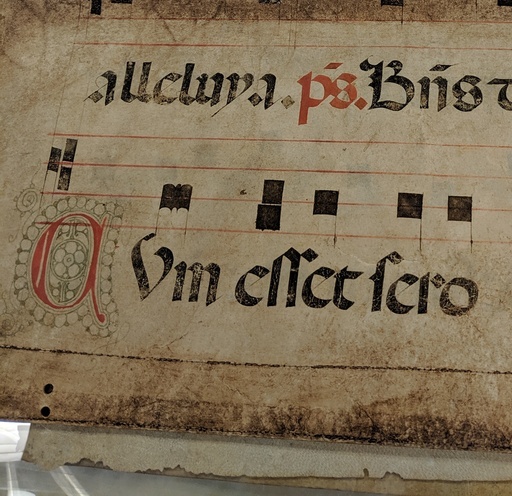 alleluya. p̄s. Bn̄s
Cum esset sero